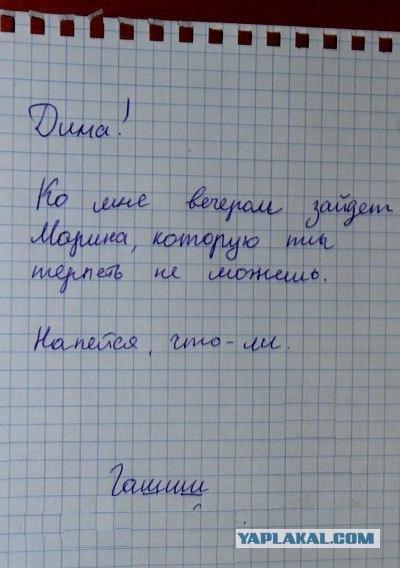 Дима!
Ко мне вечером зайдет
Марина, которую ты
терпеть не можешь.
Напейся, что-ли.
YAPLAKAL.COM